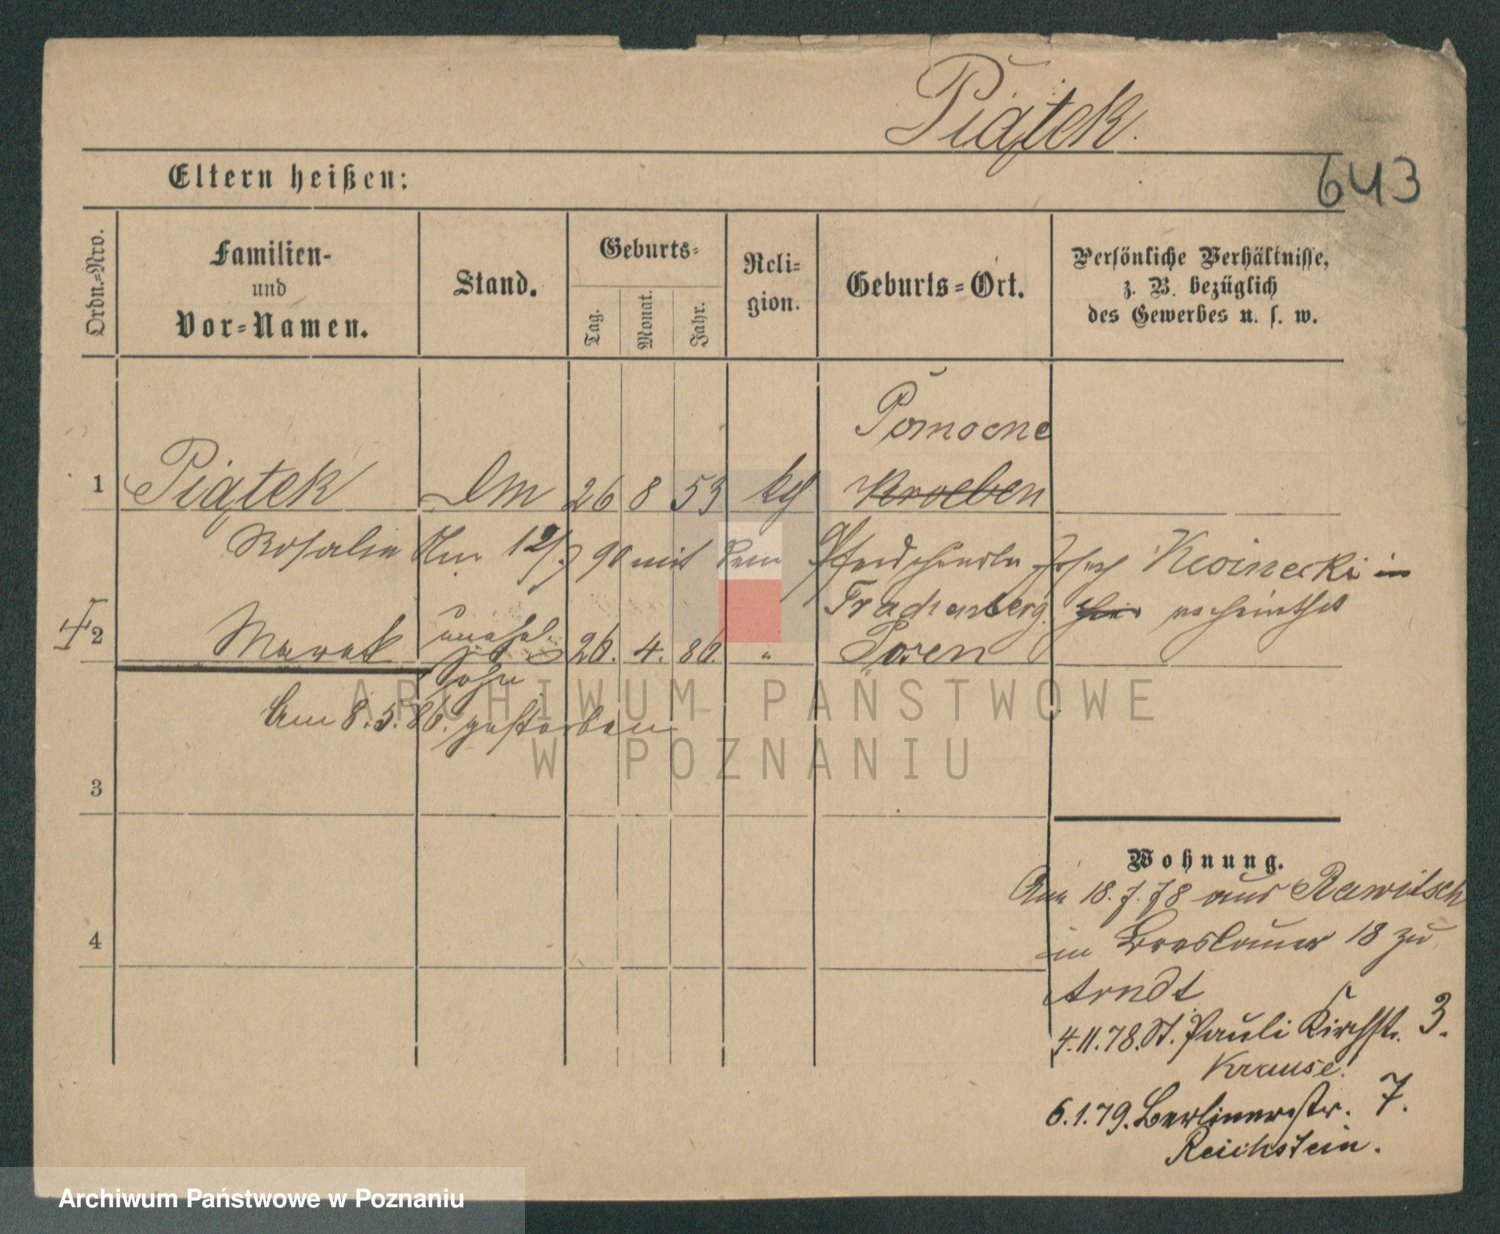 Piątek.
643
Eltern heißen:
Ordn.-Nro.
Familien-
und
Vor-Namen.
Stand.
Geburts-
Tag.
Monat.
Jahr.
Reli-
gion.
Geburts-Ort.
Persönliche Verhältnisse,
z. B. bezüglich
des Gewerbes u. s. w.
Pomocne
1 Piątek Dm 26 8 53 kth Kroeben
Rosalie Am 12/7 90 mit dem Josef Kwinecki in
Trachenberg. hier verheirathet
2 Marek unehel. 26. 4. 86. " Posen
Sohn
Am 8.5.86. gestorben
3
4
Wohnung.
Am 18.7.78 aus Rawitsch
in Breslauer 18 zu
Arndt
4.11.78. St. Pauli Kirchstr. 3.
Krause.
6.1.79. Berlinerstr. 7.
Reichstein.
ARCHIWUM PAŃSTWOWE
W POZNANIU
Archiwum Państwowe w Poznaniu